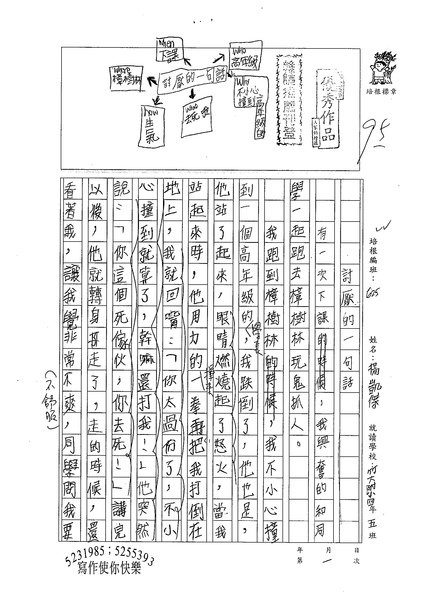 when
下課
who
高年級
where
樟樹林
討厭的一句話
why
不小心
撞到
高年級的
how
生氣
what
去死吧
優秀作品
培根標章
95
培根編班:
605
姓名:楊凱傑
就讀學校
附大附小四年五班
目次
一
年 月
第
討厭的一句話
有一次下課的時候,我興奮的和同
學一起跑去樟樹林玩鬼抓人。
我跑到樟樹林的時候,我不小心撞
到一個高年級的學生,我跌倒了,他也是,
他站了起來,眼睛燃燒起了怒火,當我
站起來時,他用力的一拳把我打倒在
地上,我就回嘴:「你太過份了,不小
心撞到就算了,幹嘛還打我!」他突然
說:「你這個死傢伙,你去死!」講完
以後,他就轉身走了,走的時候,還
看著我,讓我覺非常不爽,同學問我要
(不舒服)
5231985;5255393
寫作使你快樂